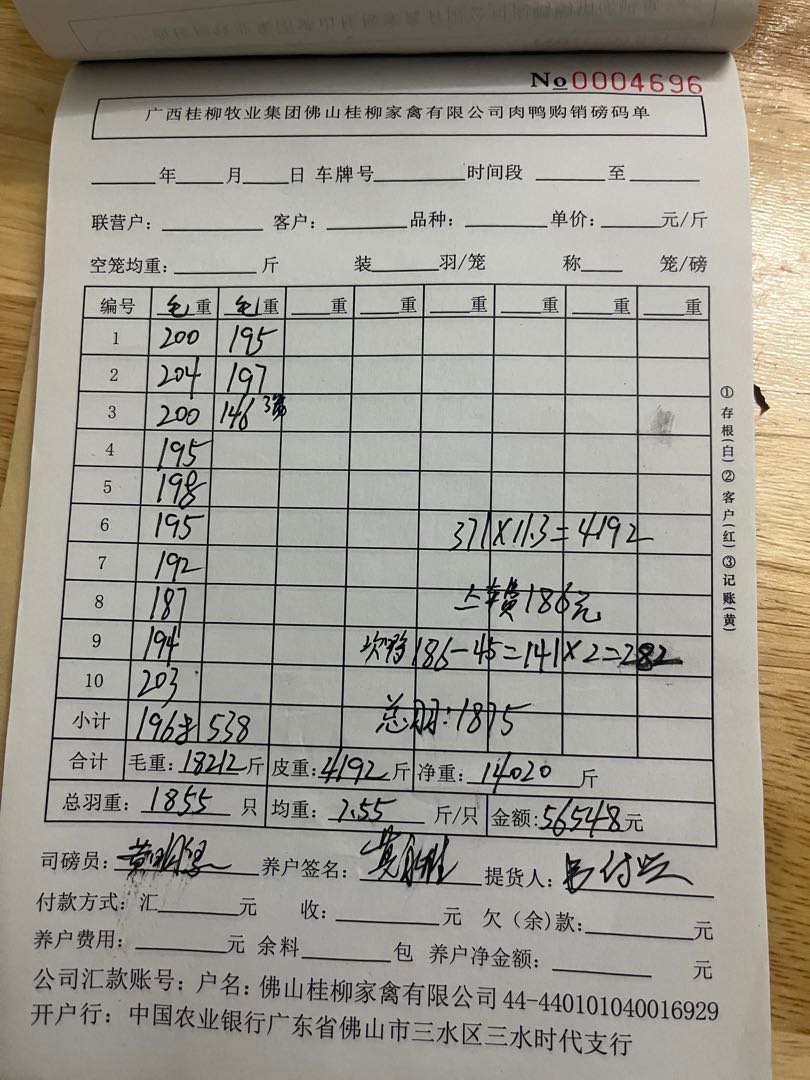 No 0004696
广西桂柳牧业集团佛山桂柳家禽有限公司肉鸭购销磅码单
年 月 日 车牌号 时间段 至
联营户: 客户: 品种: 单价: 元/斤
空笼均重: 斤 装 羽/笼 称 笼/磅
编号 毛重 毛重 重 重 重 重 重 重
1 200 195
2 204 197
3 200 146 3笼
4 195
5 198
6 195 371×11.3=4192
7 192
8 187 上车费186元
9 194 186-45=141×2=282
10 203
小计 1968 538 总羽:1875
合计 毛重:18212斤 皮重:4192斤 净重:14020斤
总羽重:1855只 均重:7.55斤/只 金额:56548元
司磅员: 养户签名: 提货人:
付款方式:汇 元 收: 元 欠(余)款: 元
养户费用: 元 余料 包 养户净金额: 元
公司汇款账号:户名:佛山桂柳家禽有限公司44-440101040016929
开户行:中国农业银行广东省佛山市三水区三水时代支行
①存根(白)②客户(红)③记账(黄)